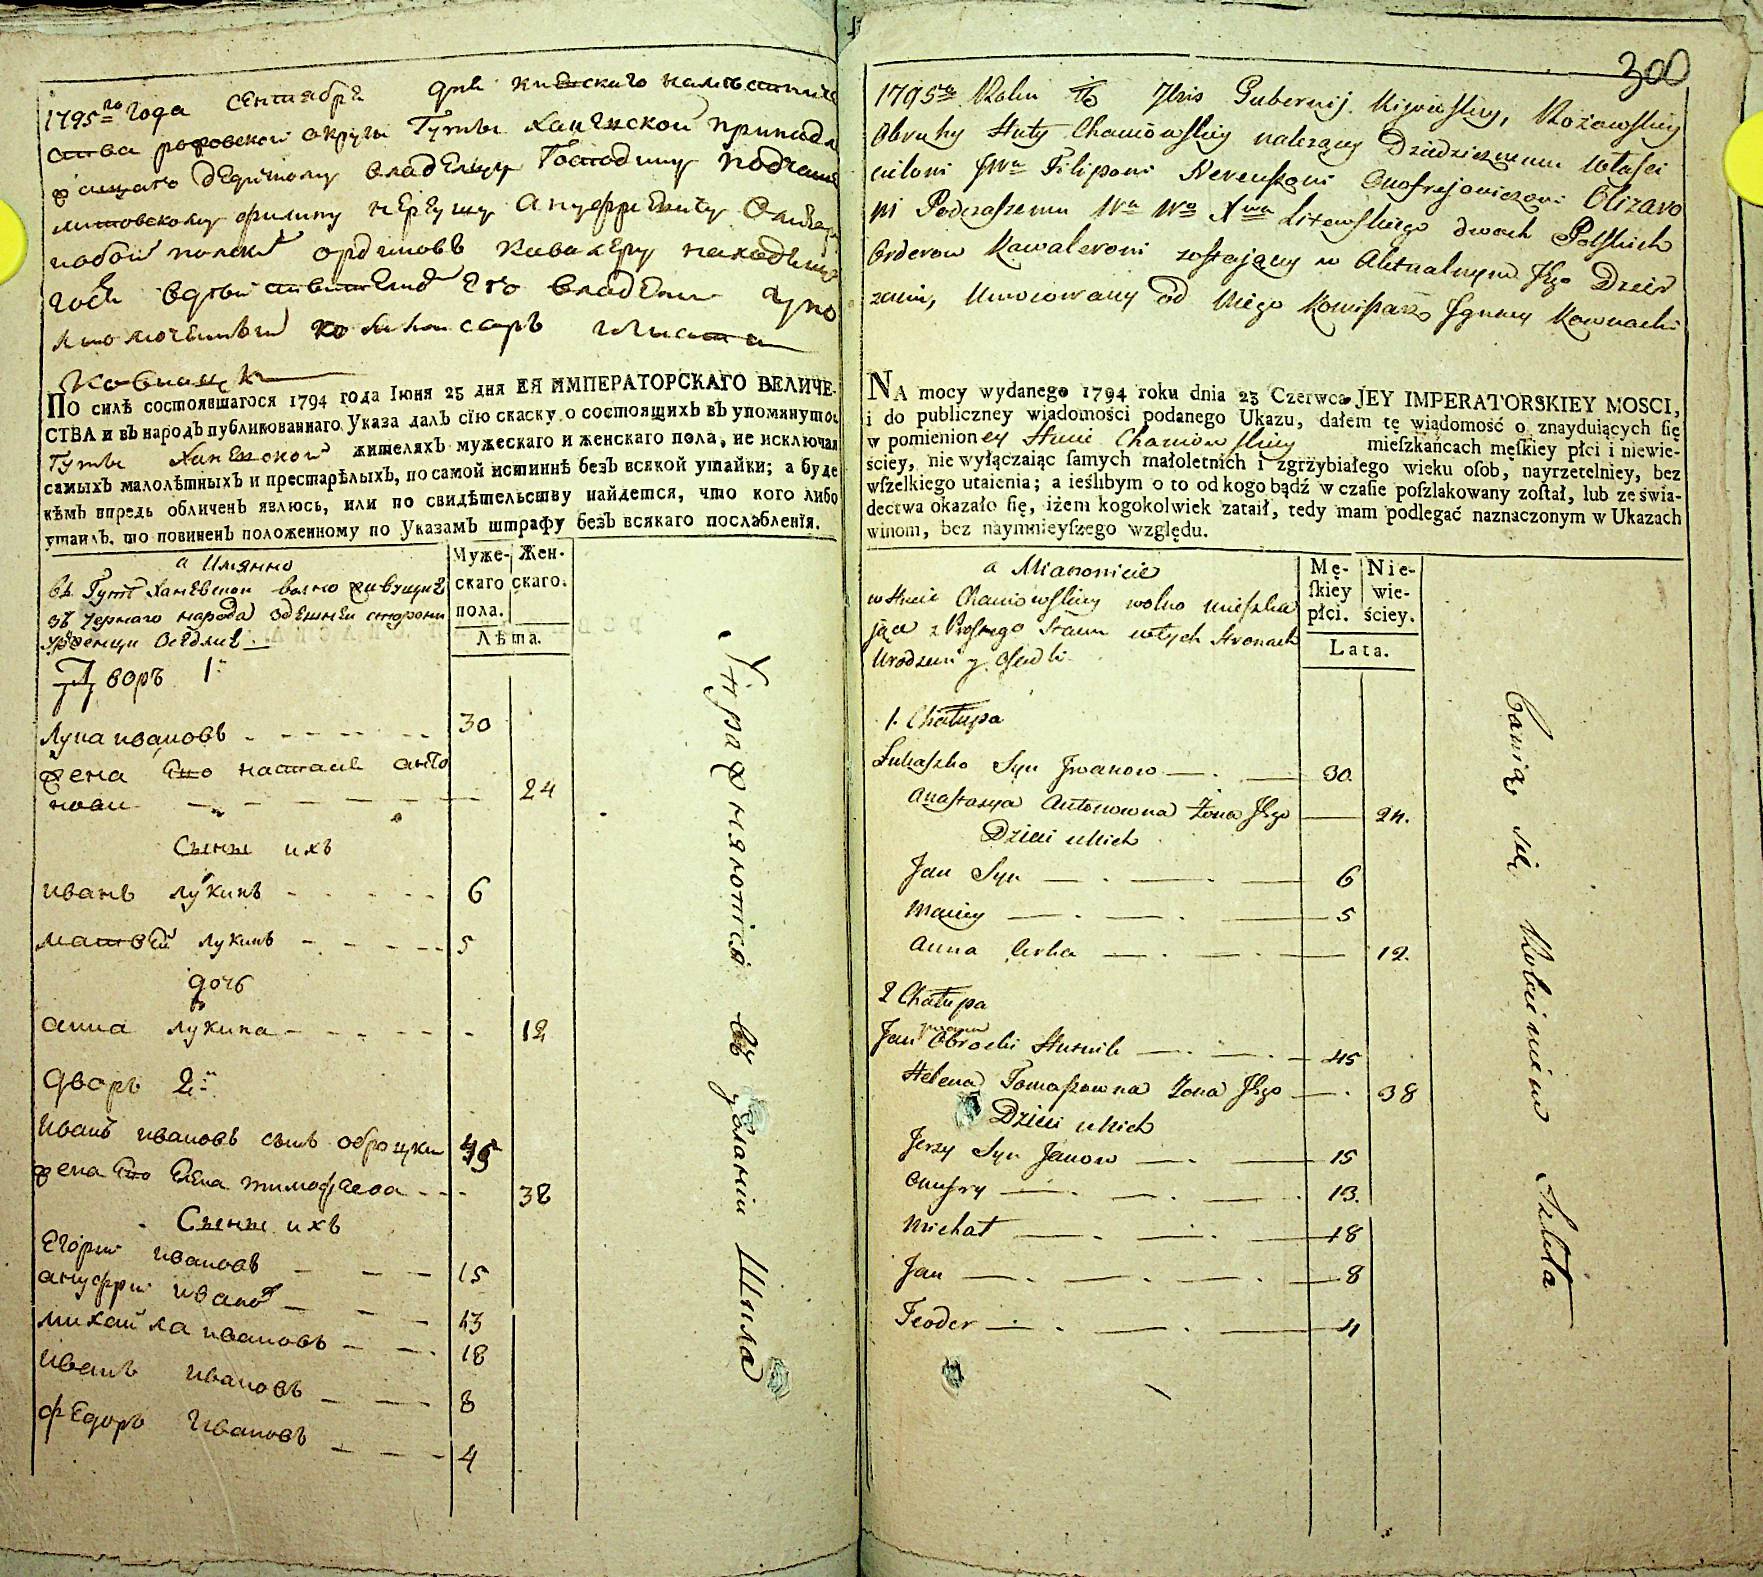 1795го года сентября дня киевскаго намѣстниче
ства рофовской округи Гуты Ханевской принадл
жащаго дедичному владельцу Господину подчаше
литовскому филипу нереушу ануфриевичу Олизар
ордановъ кавалеру находящи
гося вдействительной его владении упо
лномоченный комисаръ игнати
Ковнацки
По силѣ состоявшагося 1794 года Іюня 23 дня ЕЯ ИМПЕРАТОРСКАГО ВЕЛИЧЕ-
СТВА и въ народъ публикованнаго Указа далъ сію скаску о состоящихъ въ упомянутой
Гуты Ханевской жителяхъ мужескаго и женскаго пола, не исключая
самыхъ малолѣтныхъ и престарѣлыхъ, по самой истиннѣ безъ всякой утайки; а буде
кѣмъ впредь обличенъ явлюсь, или по свидѣтельству найдется, что кого либо
утаилъ, то повиненъ положенному по Указамъ штрафу безъ всякаго послабленія.
а Имянно
въ Гутѣ Ханевской волно живущие
зъ чернаго народа здешней стороны
урженци оседлие
Муже-
скаго
пола.
Жен-
скаго.
Лѣта.
Дворъ 1й
Лука ивановъ 30
жена его настася анто
нова 24
Сыны ихъ
иванъ лукинъ 6
матвѣй лукинъ 5
дочь
анна лукина 12
дворъ 2й
Иванъ ивановъ сынъ оброцки 45
жена его Елена тимофеева 38
Сыны ихъ
Егорий ивановъ 15
ануфри иванов 13
михайла ивановъ 18
иванъ ивановъ 8
федоръ ивановъ 4
Упражняются въ деланіи Шкла
300
1795go Roku 7bris Gubernij Kijowskiey, Rożowskiey
Okruhy Huty Chaniowskiey należący Dziedzicznemu Właści
cielowi JWu Filipowi Nereuszowi Onofrejowiczowi Olizaro
wi Podczaszemu Wo Wo Xwa Litewskiego dwoch Polskich
Orderow Kawalerowi zostający w Aktualnym Jego Dzier
zeniu, Umocowany od Niego Komisarz Ignacy Kownacki
NA mocy wydanego 1794 roku dnia 23 Czerwca JEY IMPERATORSKIEY MOSCI,
i do publiczney wiadomości podanego Ukazu, dałem tę wiadomość o znayduiących ſię
w pomienioney Hucie Chaniowskiey mieſzkańcach męſkiey płci i niewie-
ściey, nie wyłączaiąc ſamych małoletnich i zgrzybiałego wieku oſob, nayrzetelniey, bez
wſzelkiego utaienia; a ieślibym o to od kogo bądź w czaſie poſzlakowany zoſtał, lub ze świa-
dectwa okazało ſię, iżem kogokolwiek zataił, tedy mam podlegać naznaczonym w Ukazach
winom, bez naymnieyſzego względu.
a Mianowicie
w Hucie Chaniowskiey wolno mieszka
jące z Prostego Stanu w tych Stronach
Urodzeni y Osiedli
Mę-
ſkiey
płci.
Nie-
wie-
ściey.
Lata.
1. Chałupa
Łukaszko Syn Iwanow 30.
Anastazya Antonowna Żona Jego 24.
Dzieci u Nich
Jan Syn 6
Maciey 5
Anna Corka 12.
2 Chałupa
Jan Obrocki Hutnik 45
Helena Tomaszowna Żona Jego 38
Dzieci u Nich
Jerzy Syn Janow 15
Onufry 13.
Michał 18
Jan 8
Teodor 4
Bawią się Robieniem Szkła